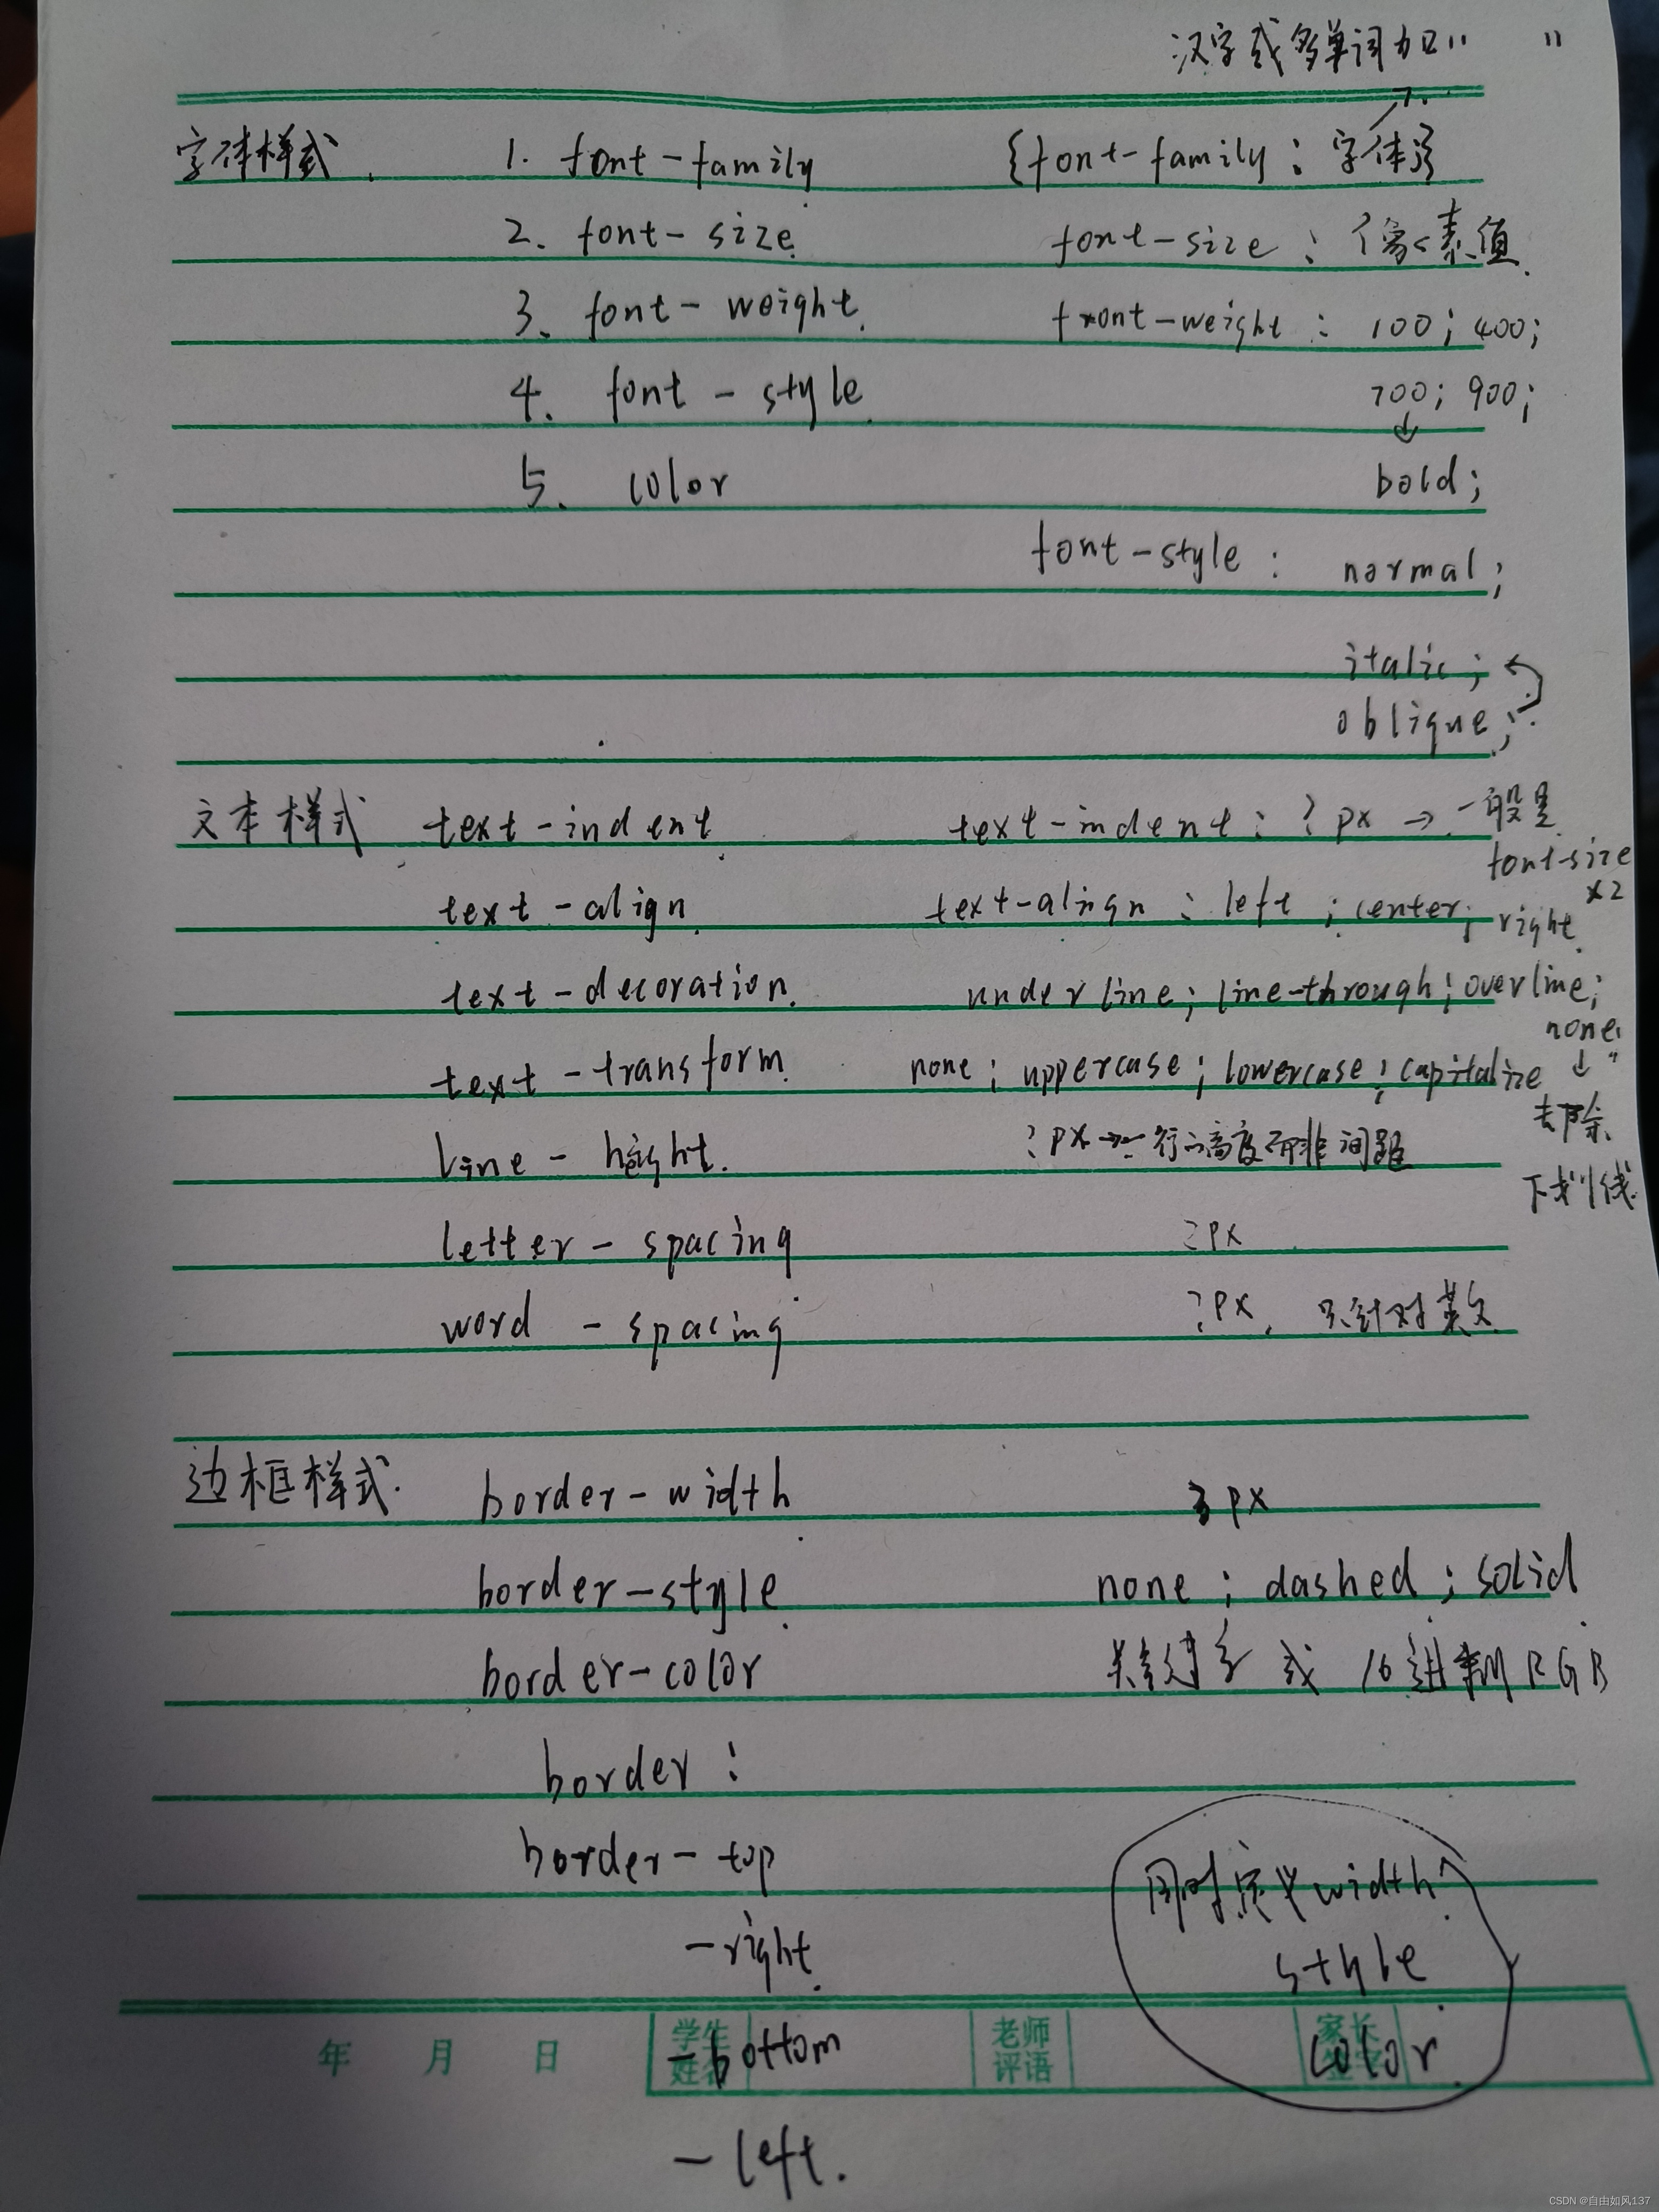 汉字或多单词加" "
字体样式. 1. font-family {font-family : 字体}
2. font-size. font-size : 像素值.
3. font-weight. font-weight : 100; 400;
4. font-style. 700; 900;
5. color bold;
font-style : normal;
italic;
oblique;
文本样式. text-indent. text-indent : ?px → 一般是
font-size
×2
text-align. text-align : left ; center; right.
text-decoration. underline; line-through; overline;
none;
text-transform. none ; uppercase ; lowercase ; capitalize
去除
line-height. ?px → 一行的高度而非间距
下划线.
letter-spacing ?px
word-spacing ?px, 只针对英文
边框样式. border-width ?px
border-style. none ; dashed ; solid
border-color 关键字 或 16进制RGB
border :
border-top 同时定义width
-right. style
年 月 日 学生姓名 老师评语 家长
-bottom color.
-left.
CSDN @自由如风137